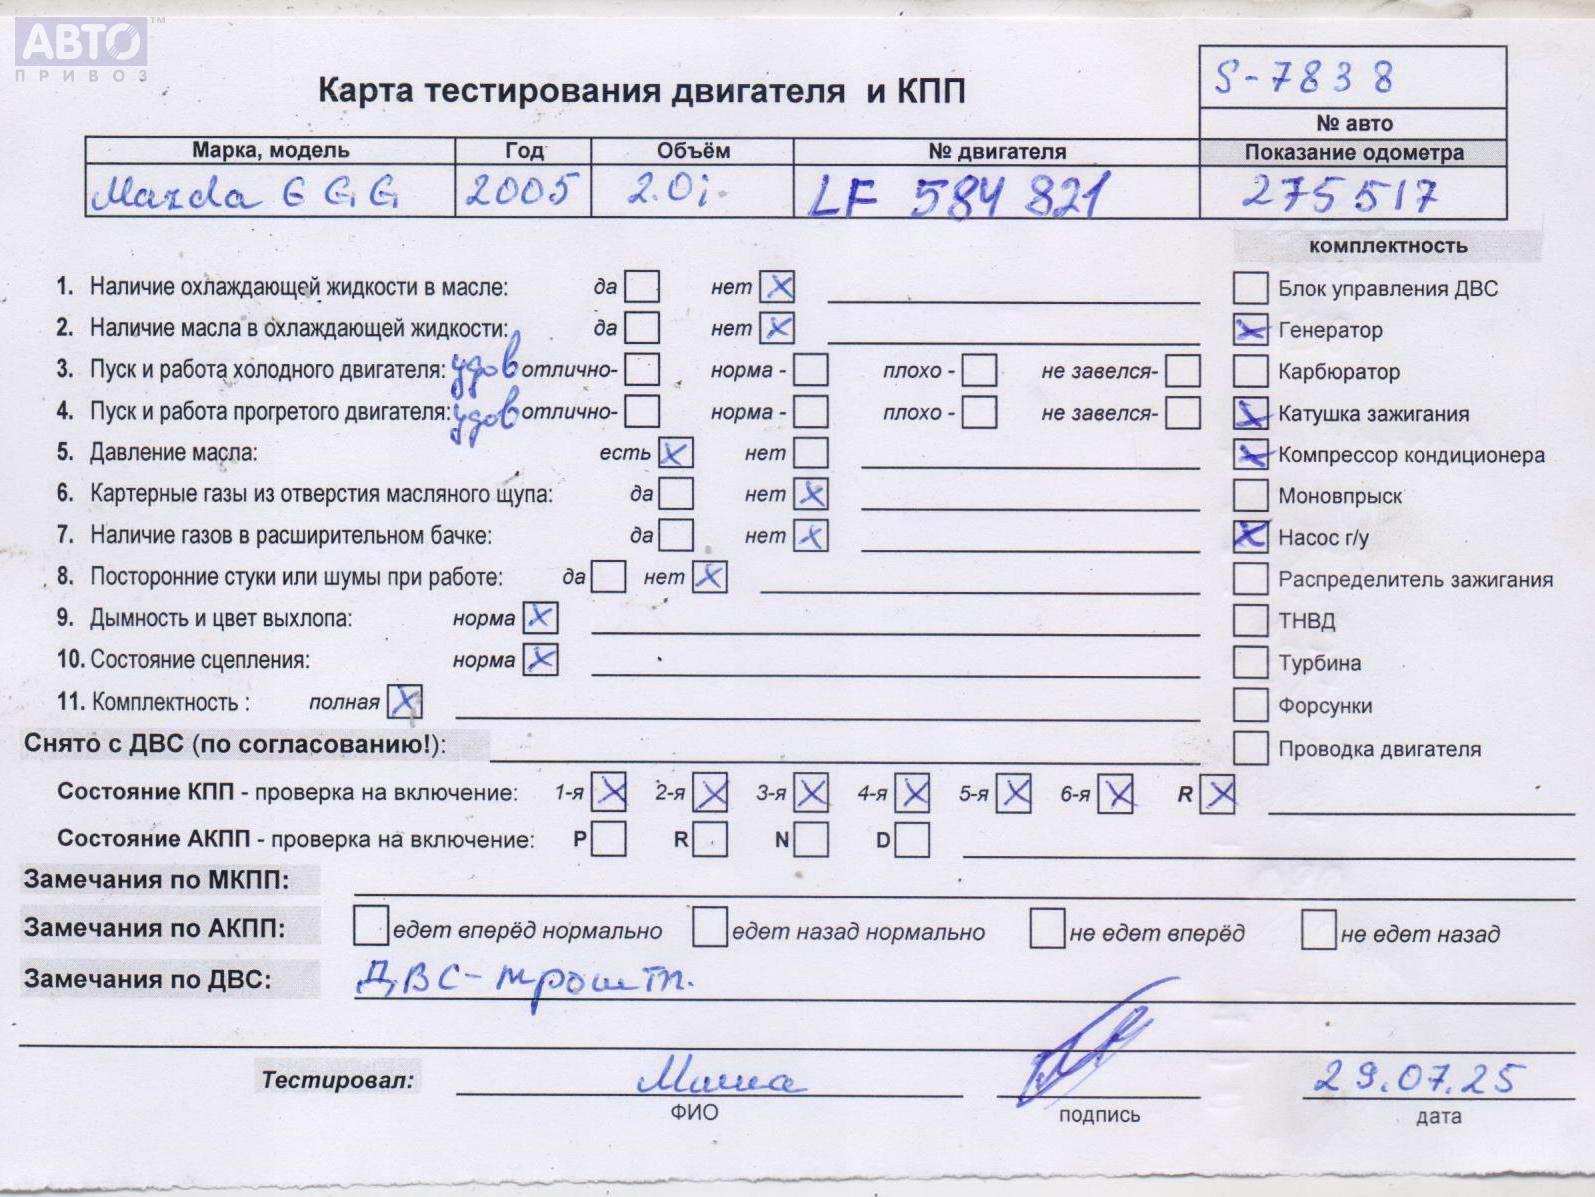 АВТО™
ПРИВОЗ
Карта тестирования двигателя и КПП
S-7838
№ авто
Марка, модель Год Объём № двигателя Показание одометра
Mazda 6 GG 2005 2.0i. LF 584 821 275517
комплектность
1. Наличие охлаждающей жидкости в масле: да нет X Блок управления ДВС
2. Наличие масла в охлаждающей жидкости: да нет X X Генератор
3. Пуск и работа холодного двигателя: удов отлично- норма - плохо - не завелся- Карбюратор
4. Пуск и работа прогретого двигателя: удов отлично- норма - плохо - не завелся- X Катушка зажигания
5. Давление масла: есть X нет X Компрессор кондиционера
6. Картерные газы из отверстия масляного щупа: да нет X Моновпрыск
7. Наличие газов в расширительном бачке: да нет X X Насос г/у
8. Посторонние стуки или шумы при работе: да нет X Распределитель зажигания
9. Дымность и цвет выхлопа: норма X ТНВД
10. Состояние сцепления: норма X Турбина
11. Комплектность : полная X Форсунки
Снято с ДВС (по согласованию!): Проводка двигателя
Состояние КПП - проверка на включение: 1-я X 2-я X 3-я X 4-я X 5-я X 6-я X R X
Состояние АКПП - проверка на включение: P R N D
Замечания по МКПП:
Замечания по АКПП: едет вперёд нормально едет назад нормально не едет вперёд не едет назад
Замечания по ДВС: ДВС-троит.
Тестировал: 29.07.25
ФИО подпись дата